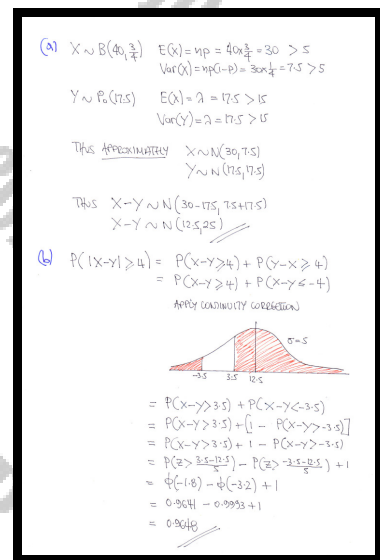 (a) X ~ B(40, 3/4) E(X) = np = 40×3/4 = 30 > 5
Var(X) = np(1-p) = 30×1/4 = 7.5 > 5
Y ~ Po(17.5) E(X) = λ = 17.5 > 15
Var(Y) = λ = 17.5 > 15
THUS APPROXIMATELY X ~ N(30, 7.5)
Y ~ N(17.5, 17.5)
THUS X-Y ~ N(30-17.5, 7.5+17.5)
X-Y ~ N(12.5, 25)
(b) P(|X-Y| ≥ 4) = P(X-Y ≥ 4) + P(Y-X ≥ 4)
= P(X-Y ≥ 4) + P(X-Y ≤ -4)
APPLY CONTINUITY CORRECTION
σ=5
-3.5 3.5 12.5
= P(X-Y > 3.5) + P(X-Y < -3.5)
= P(X-Y > 3.5) + [1 - P(X-Y > -3.5)]
= P(X-Y > 3.5) + 1 - P(X-Y > -3.5)
= P(Z > 3.5-12.5/5) - P(Z > -3.5-12.5/5) + 1
= Φ(-1.8) - Φ(-3.2) + 1
= 0.9641 - 0.9993 + 1
= 0.9648